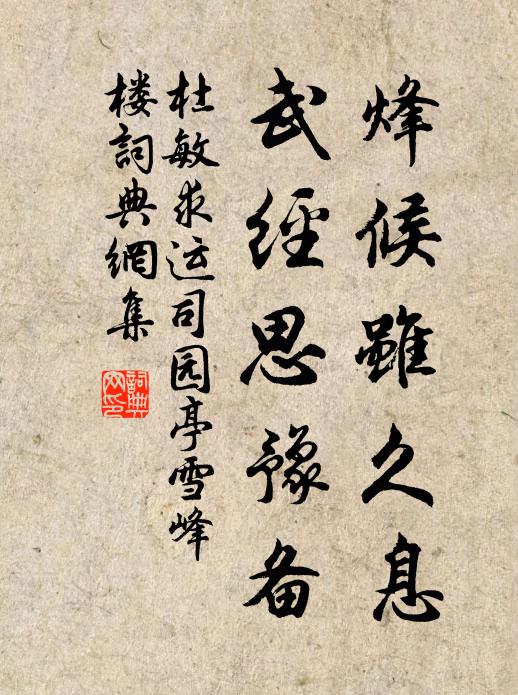 烽候雖久息
武經思豫备
杜敏求运司园亭雪峰
楼詞典網集
詞典网印